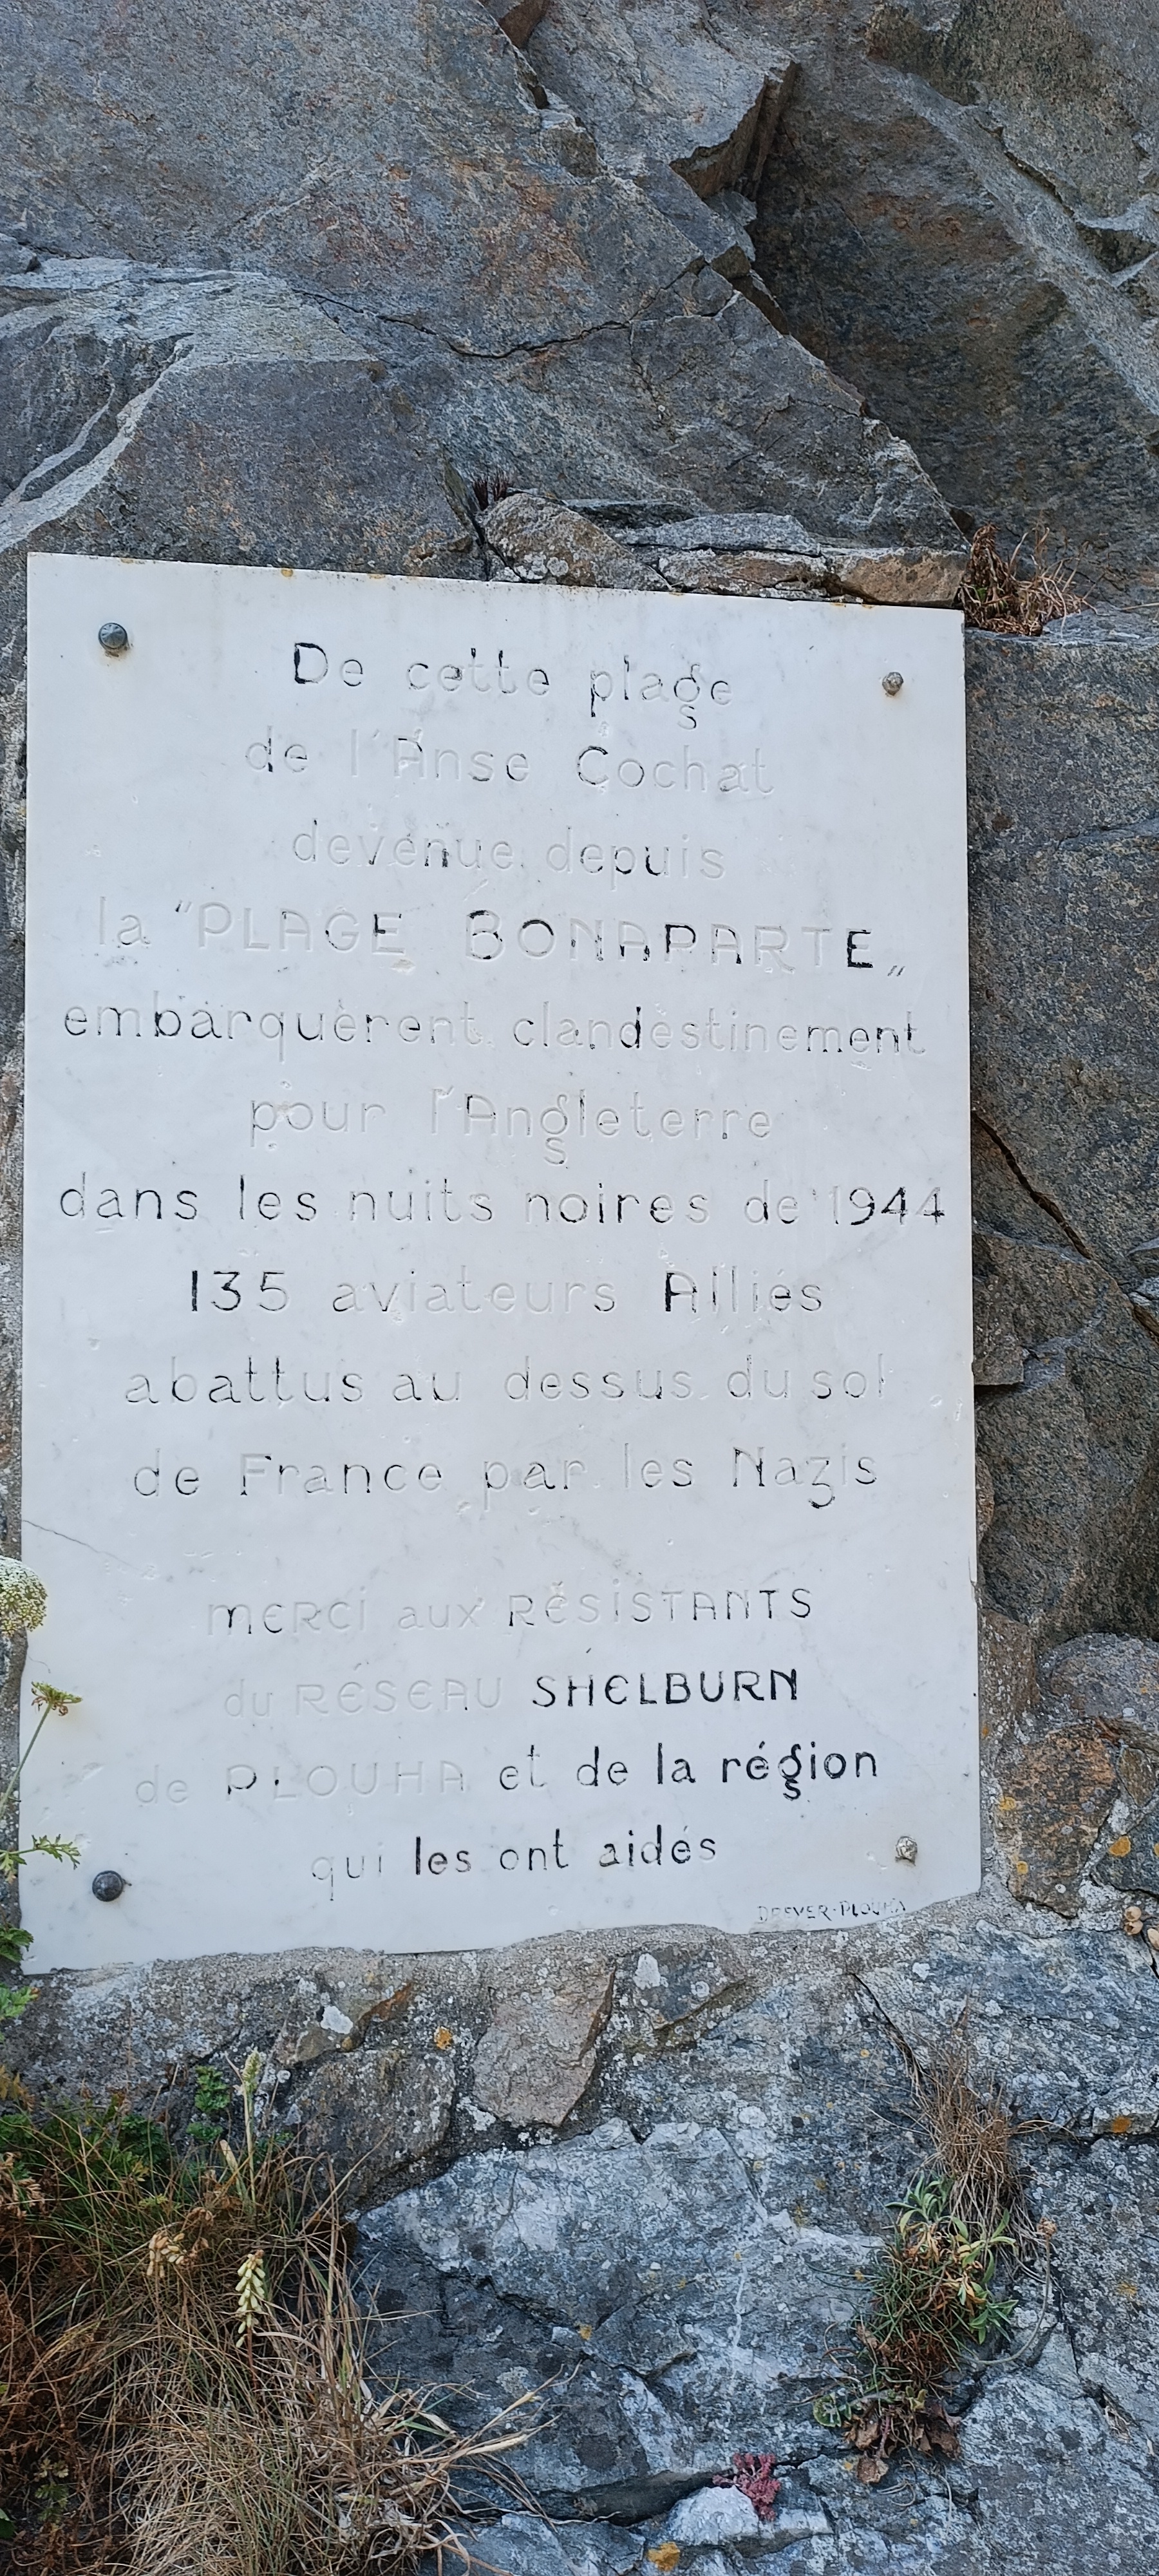 De cette plage
de l'Anse Cochat
devenue depuis
la "PLAGE BONAPARTE"
embarquèrent clandestinement
pour l'Angleterre
dans les nuits noires de 1944
135 aviateurs Alliés
abattus au dessus du sol
de France par les Nazis
MERCI aux RÉSISTANTS
du RÉSEAU SHELBURN
de PLOUHA et de la région
qui les ont aidés
PLOUHA